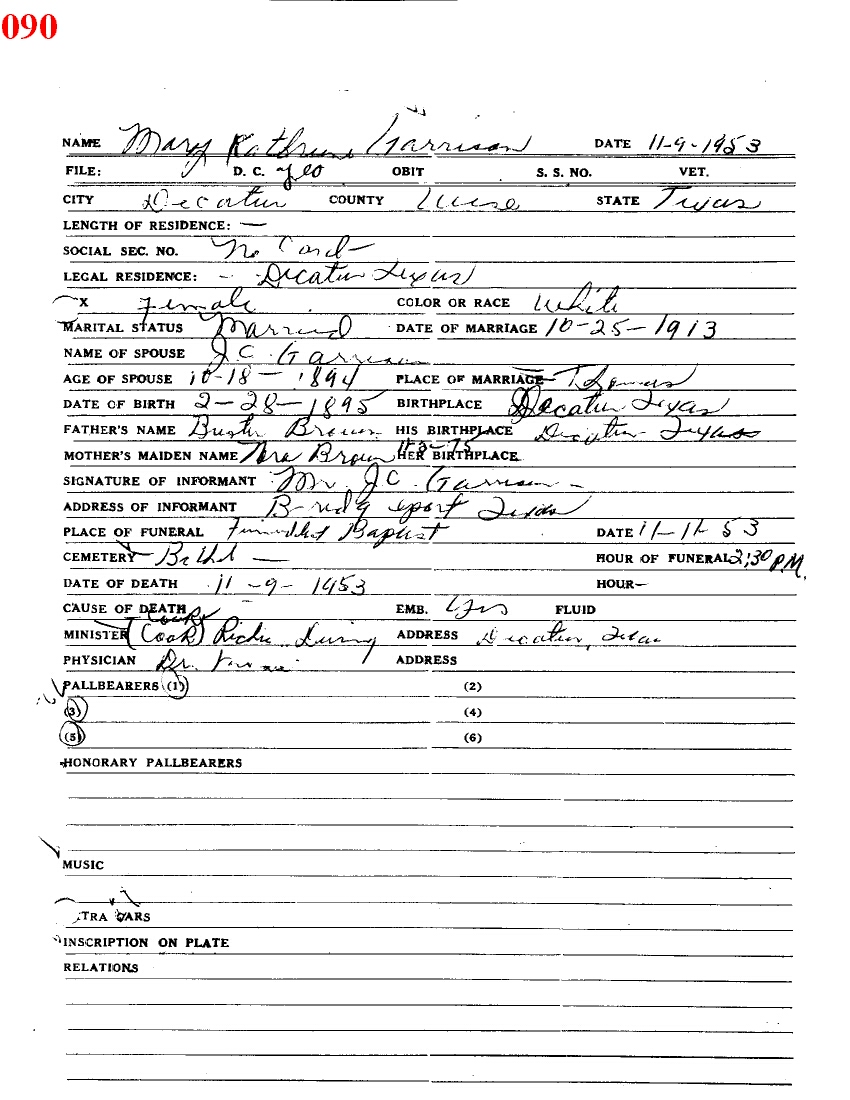 090
NAME Mary Kathrine Garrison DATE 11-9-1953
FILE: D. C. yes OBIT S. S. NO. VET.
CITY Decatur COUNTY Wise STATE Texas
LENGTH OF RESIDENCE: —
SOCIAL SEC. NO. No Card
LEGAL RESIDENCE: - Decatur Texas
X Female COLOR OR RACE White
MARITAL STATUS Married DATE OF MARRIAGE 10-25-1913
NAME OF SPOUSE J.C. Garrison
AGE OF SPOUSE 10-18-1894 PLACE OF MARRIAGE
DATE OF BIRTH 2-28-1895 BIRTHPLACE Decatur Texas
FATHER'S NAME Brown HIS BIRTHPLACE Decatur Texas
MOTHER'S MAIDEN NAME Brown HER BIRTHPLACE
SIGNATURE OF INFORMANT Mr. J.C. Garrison -
ADDRESS OF INFORMANT Bridgeport Texas
PLACE OF FUNERAL Baptist DATE 11-11-53
CEMETERY — HOUR OF FUNERAL 2:30 P.M.
DATE OF DEATH 11-9-1953 HOUR—
CAUSE OF DEATH EMB. Yes FLUID
MINISTER (Cook) ADDRESS Decatur, Texas
PHYSICIAN Dr. ADDRESS
PALLBEARERS (1) (2)
(3) (4)
(5) (6)
HONORARY PALLBEARERS
MUSIC
TRA CARS
INSCRIPTION ON PLATE
RELATIONS